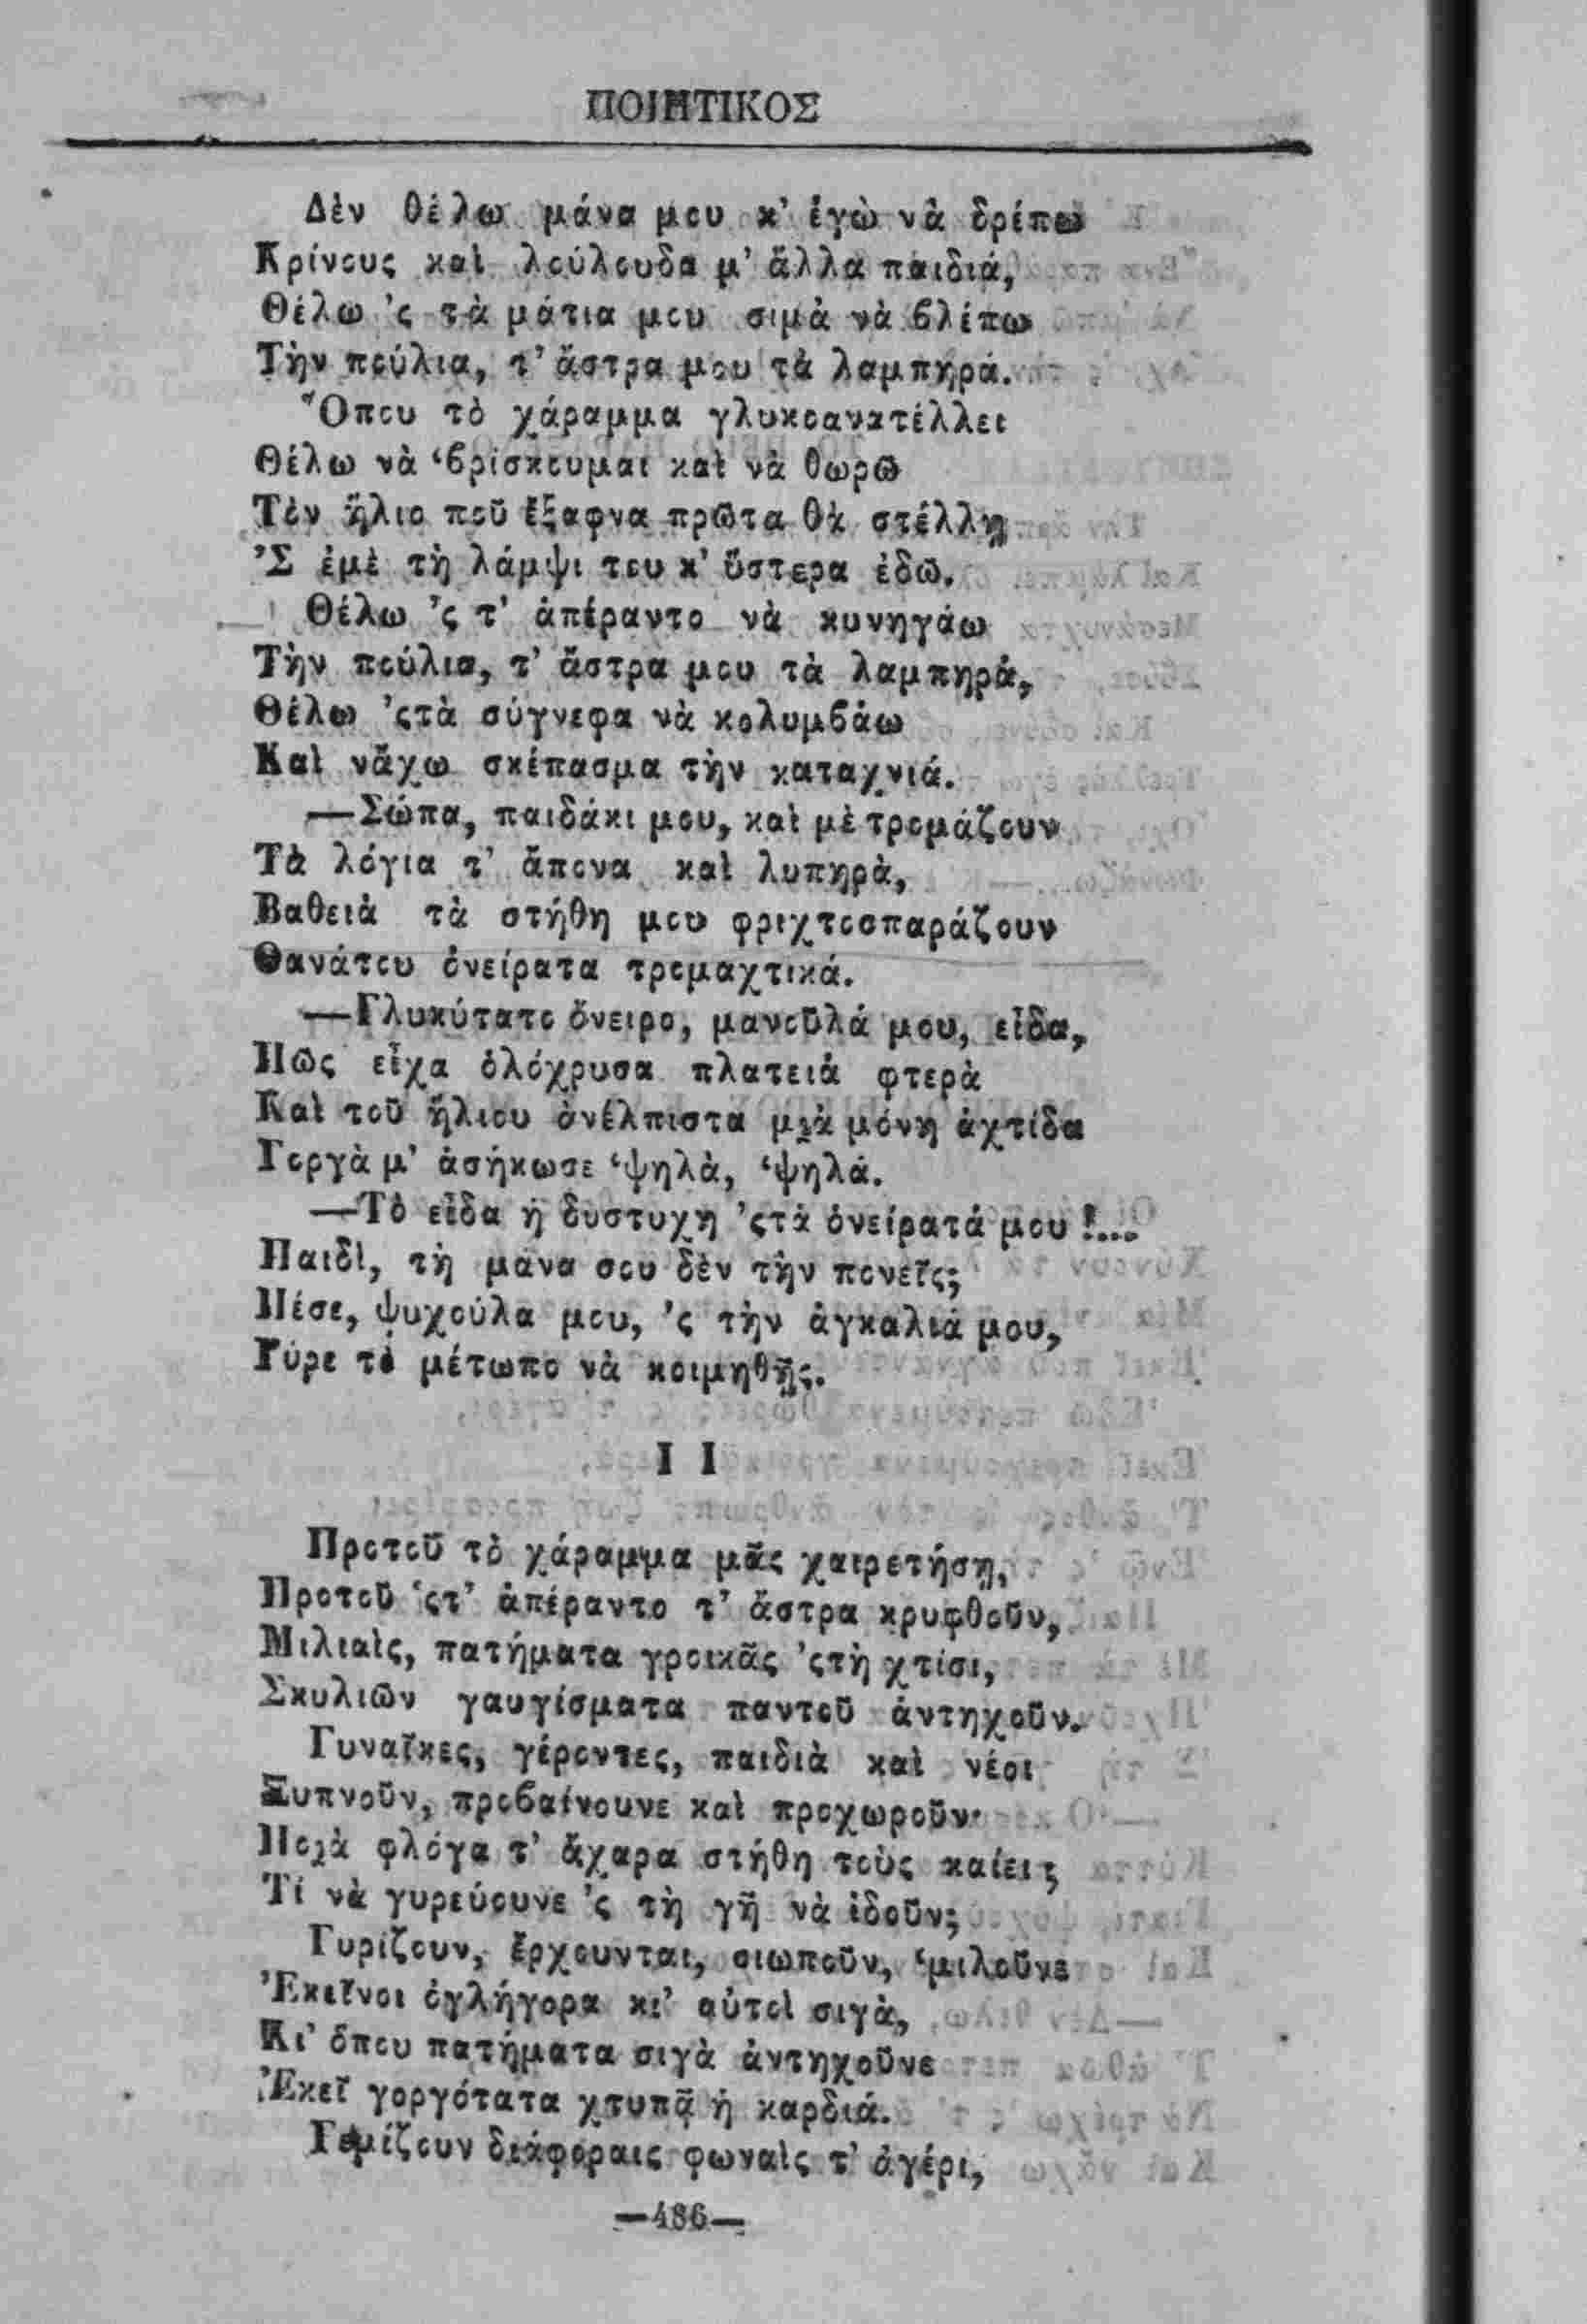 ΠΟΙΗΤΙΚΟΣ
Δὲν θέλω μάνα μου κ' ἐγὼ νὰ δρέπω
Κρίνους καὶ λούλουδα μ' ἄλλα παιδιά,
Θέλω 'ς τὰ μάτια μου σιμὰ νὰ βλέπω
Τὴν πούλια, τ' ἄστρα μου τὰ λαμπηρά.
Ὅπου τὸ χάραμμα γλυκοανατέλλει
Θέλω νὰ 'βρίσκουμαι καὶ νὰ θωρῶ
Τὸν ἥλιο ποῦ ἔξαφνα πρῶτα θὰ στέλλῃ
'Σ ἐμὲ τὴ λάμψι του κ' ὕστερα ἐδῶ.
Θέλω 'ς τ' ἀπέραντο νὰ κυνηγάω
Τὴν πούλια, τ' ἄστρα μου τὰ λαμπηρά,
Θέλω 'ςτὰ σύγνεφα νὰ κολυμβάω
Καὶ νἄχω σκέπασμα τὴν καταχνιά.
—Σώπα, παιδάκι μου, καὶ μὲ τρομάζουν
Τὰ λόγια τ' ἄπονα καὶ λυπηρὰ,
Βαθειὰ τὰ στήθη μου φριχτοσπαράζουν
Θανάτου ὀνείρατα τρομαχτικά.
—Γλυκύτατο ὄνειρο, μανοῦλά μου, εἶδα,
Πῶς εἶχα ὁλόχρυσα πλατειὰ φτερὰ
Καὶ τοῦ ἥλιου ἀνέλπιστα μιὰ μόνη ἀχτίδα
Γοργὰ μ' ἀσήκωσε 'ψηλὰ, 'ψηλά.
—Τὸ εἶδα ἡ δυστυχη 'ςτὰ ὀνείρατά μου !...
Παιδὶ, τὴ μανα σου δὲν τὴν πονεῖς;
Πέσε, ψυχούλα μου, 'ς τὴν ἀγκαλιά μου,
Γύρε τὸ μέτωπο νὰ κοιμηθῇς.
I I
Προτοῦ τὸ χάραμμα μᾶς χαιρετήσῃ,
Προτοῦ 'ςτ' ἀπέραντο τ' ἄστρα κρυφθοῦν,
Μιλιαὶς, πατήματα γροικᾶς 'ςτὴ χτίσι,
Σκυλιῶν γαυγίσματα παντοῦ ἀντηχοῦν.
Γυναῖκες, γέροντες, παιδιὰ καὶ νέοι
Ξυπνοῦν, προβαίνουνε καὶ προχωροῦν·
Ποιὰ φλόγα τ' ἄχαρα στήθη τοὺς καίει;
Τί νὰ γυρεύουνε 'ς τὴ γῆ νὰ ἰδοῦν;
Γυρίζουν, ἔρχουνται, σιωποῦν, 'μιλοῦνε
Ἐκεῖνοι ὀγλήγορα κι' αὐτοὶ σιγὰ,
Κι' ὅπου πατήματα σιγὰ ἀντηχοῦνε
Ἐκεῖ γοργότατα χτυπᾷ ἡ καρδιά.
Γεμίζουν διάφοραις φωναὶς τ' ἀγέρι,
—486—